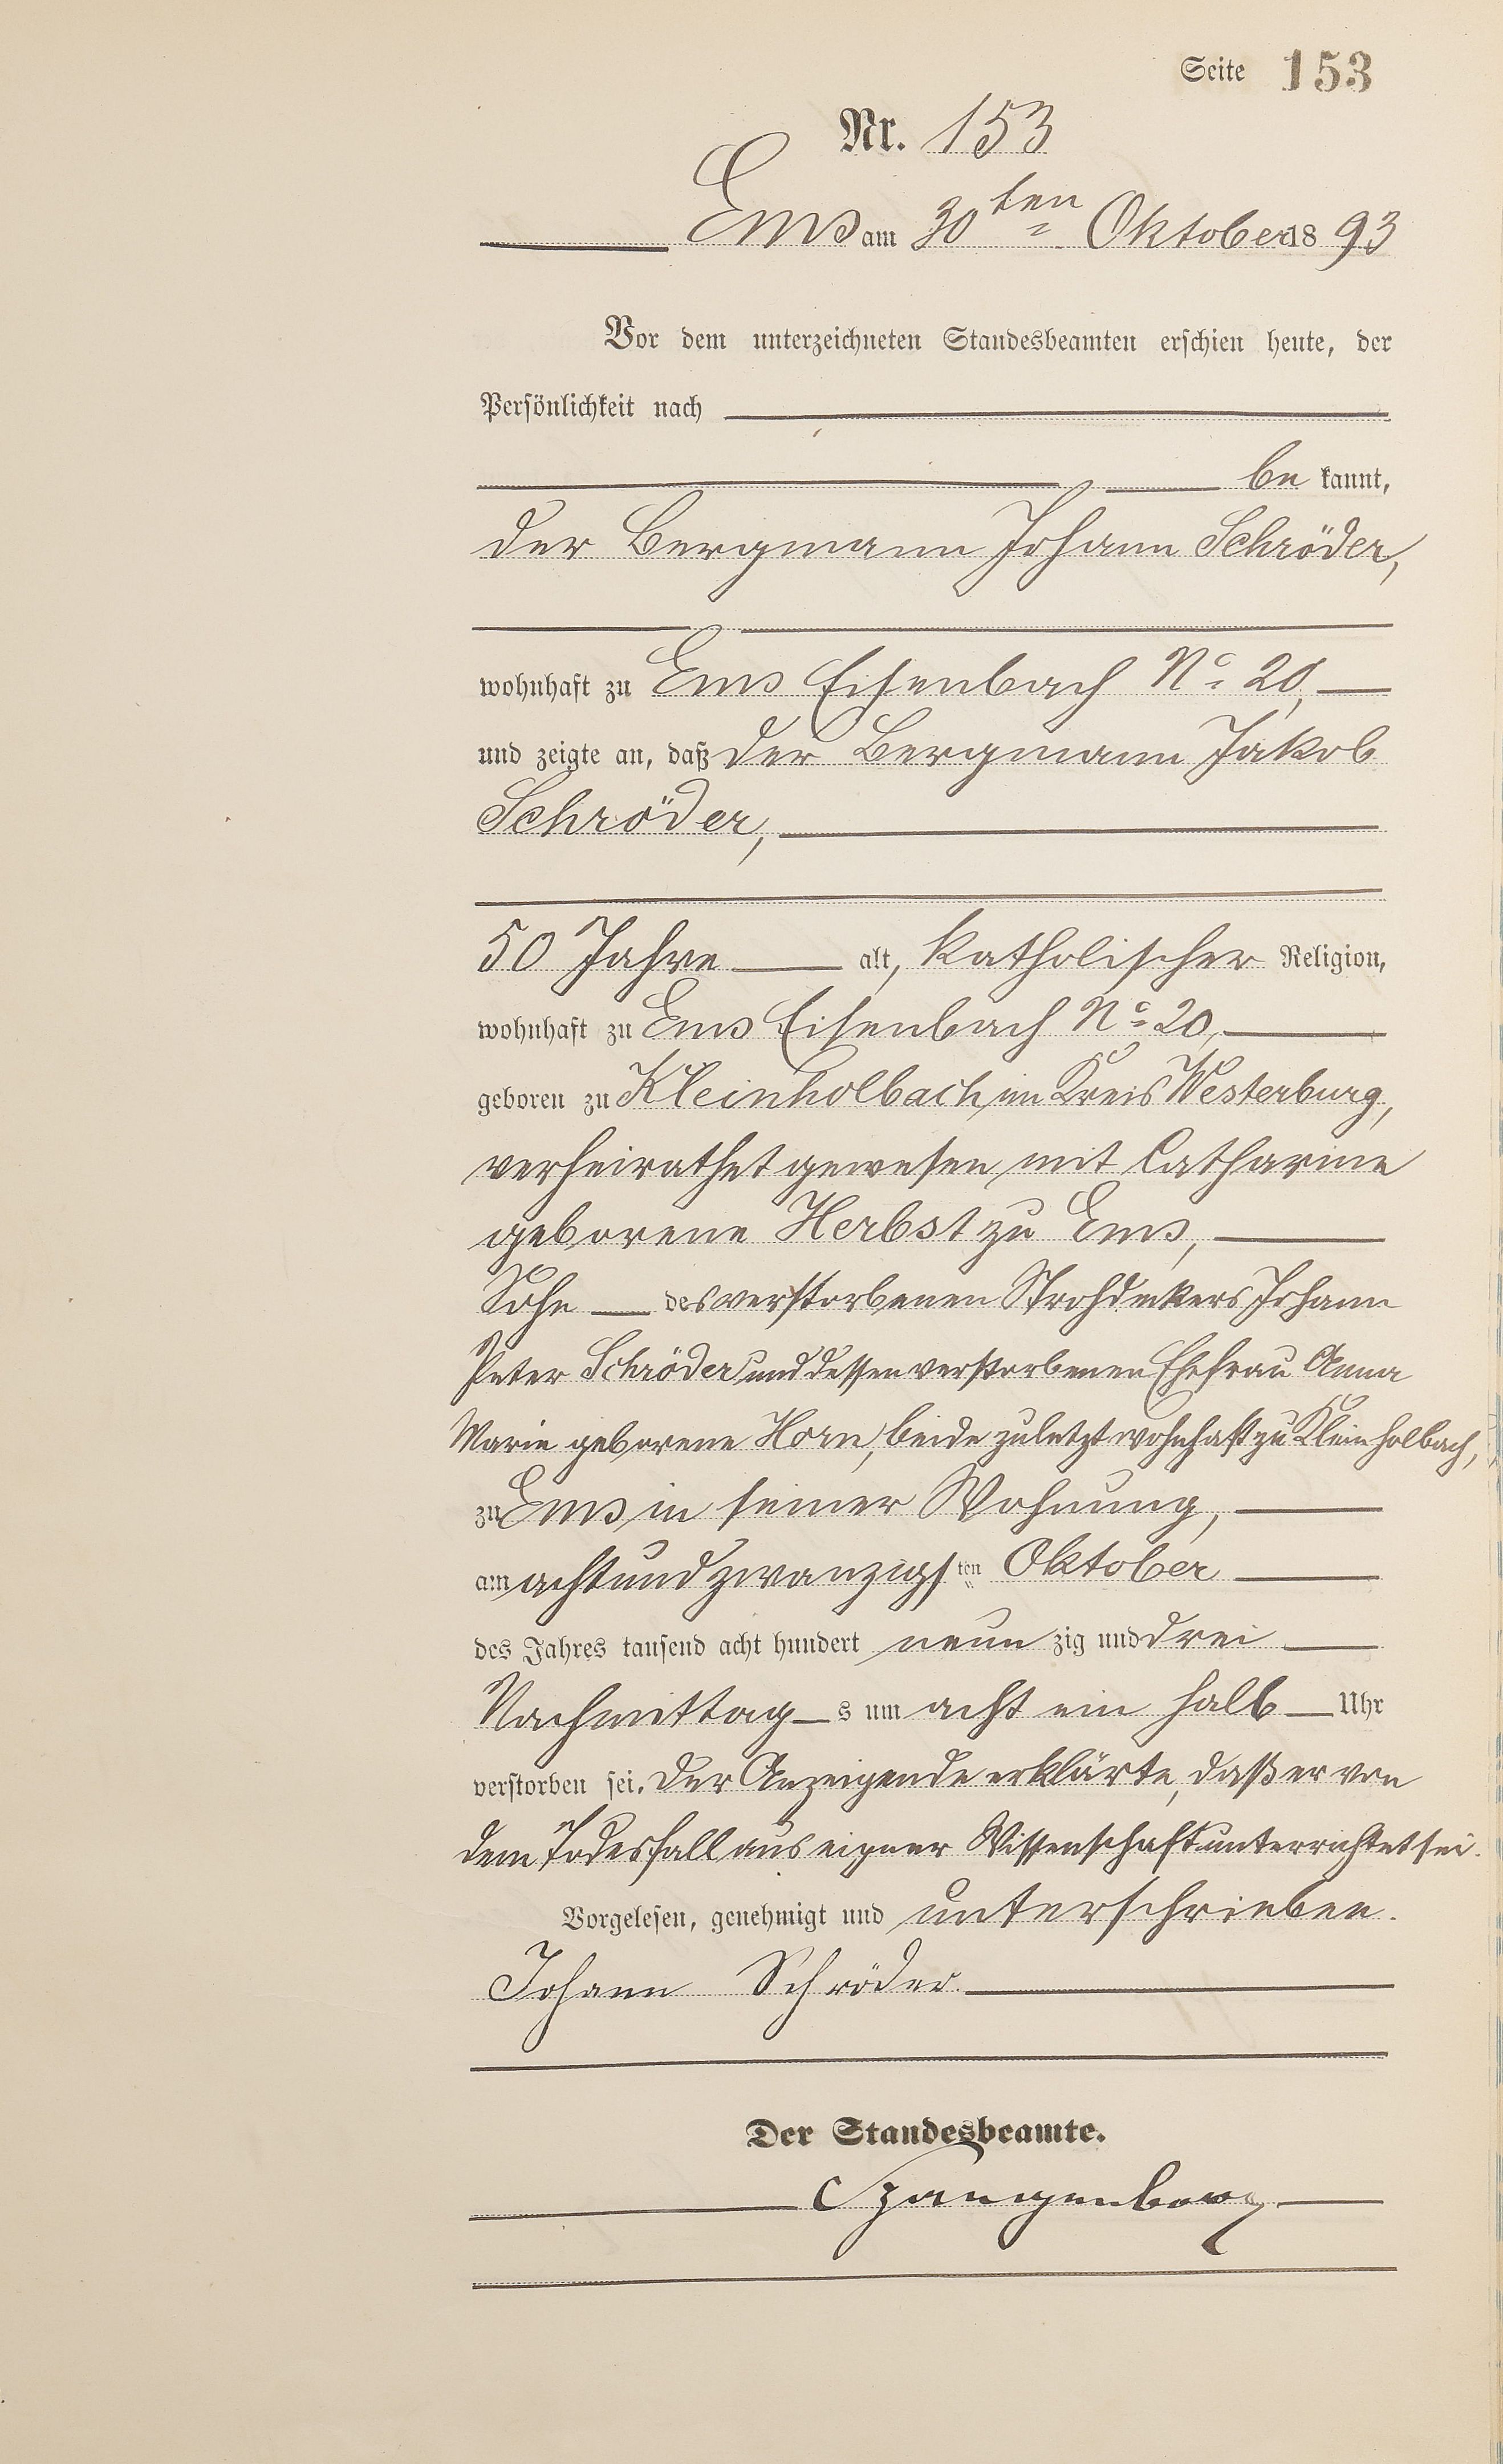 Seite 153
Nr. 153
Ems am 30ten Oktober 18 93
Vor dem unterzeichneten Standesbeamten erschien heute, der
Persönlichkeit nach
be kannt,
der Bergmann Johann Schröder,
wohnhaft zu Ems Eisenbach No 20,
und zeigte an, daß der Bergmann Jakob
Schröder,
50 Jahre alt, katholischer Religion,
wohnhaft zu Ems Eisenbach No 20,
geboren zu Kleinholbach im Kreis Westerburg,
verheirathet gewesen mit Catharine
geborene Herbst zu Ems,
Sohn des verstorbenen Strohdeckers Johann
Peter Schröder und dessen verstorbenen Ehefrau Anna
Marie geborene Horn, beide zuletzt wohnhaft zu Kleinholbach,
zu Ems in seiner Wohnung,
am achtundzwanzigsten Oktober
des Jahres tausend acht hundert neun zig und drei
Nachmittag s um acht ein halb Uhr
verstorben sei. Der Anzeigende erklärte, daß er von
dem Todesfall aus eigner Wissenschaft unterrichtet sei.
Vorgelesen, genehmigt und unterschrieben.
Johann Schröder.
Der Standesbeamte.
Spangenberg